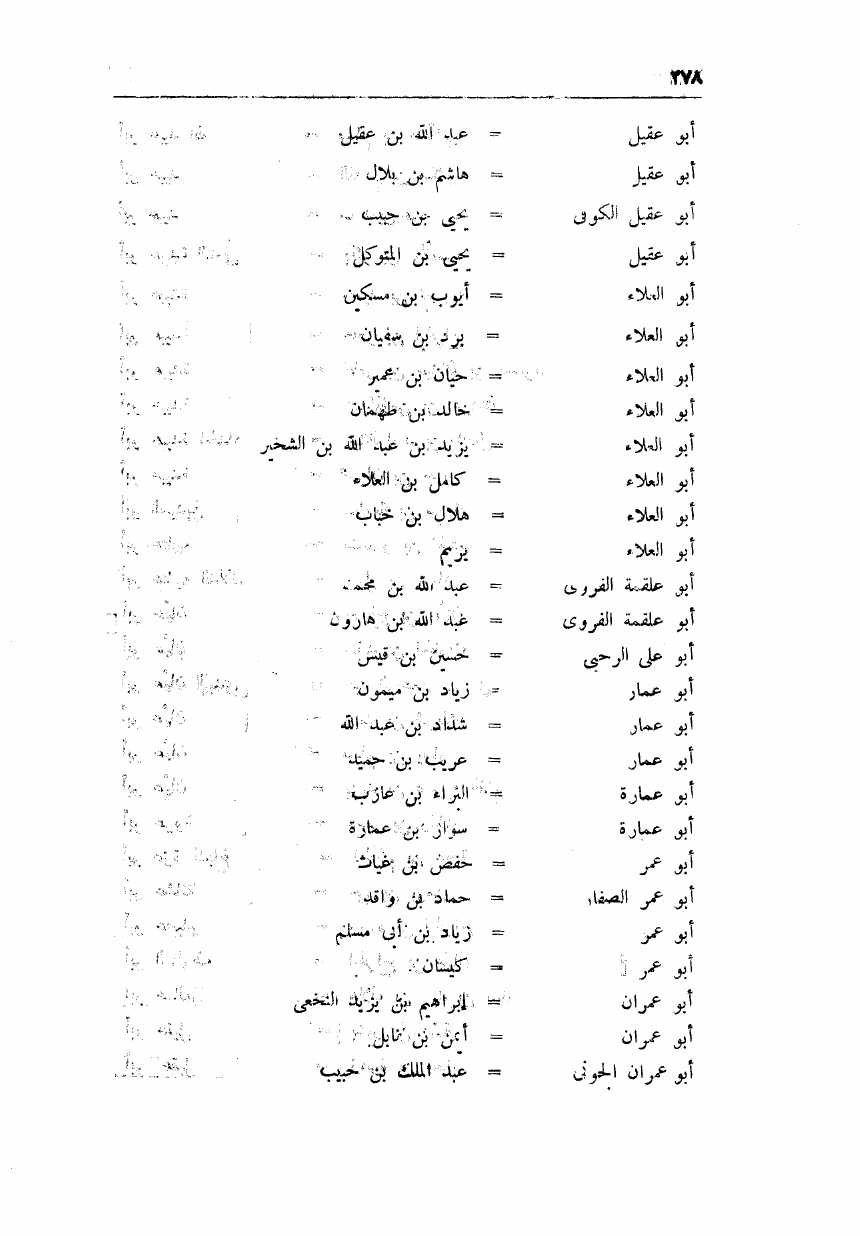 ٣٧٨
أبو عقيل = عبد الله بن عقيل
أبو عقيل = هاشم بن بلال
أبو عقيل الكوفى = يحيى بن حبيب
أبو عقيل = يحيى بن المتوكل
أبو العلاء = أيوب بن مسكين
أبو العلاء = برد بن سفيان
أبو العلاء = حيان بن عمير
أبو العلاء = خالد بن طهمان
أبو العلاء = يزيد بن عبد الله بن الشخير
أبو العلاء = كامل بن العلاء
أبو العلاء = هلال بن خباب
أبو العلاء = يزيم
أبو علقمة الفروى = عبد الله بن محمد
أبو علقمة الفروى = عبد الله بن هارون
أبو على الرحبى = حسين بن قيس
أبو عمار = زياد بن ميمون
أبو عمار = شداد بن عبد الله
أبو عمار = عريب بن حميد
أبو عمارة = البراء بن عازب
أبو عمارة = سوار بن عمارة
أبو عمر = حفص بن غياث
أبو عمر الصفار = حماد بن واقد
أبو عمر = زياد بن أبى مسلم
أبو عمر = كيسان
أبو عمران = إبراهيم بن يزيد النخعى
أبو عمران = أيمن بن نابل
أبو عمران الجونى = عبد الملك بن حبيب